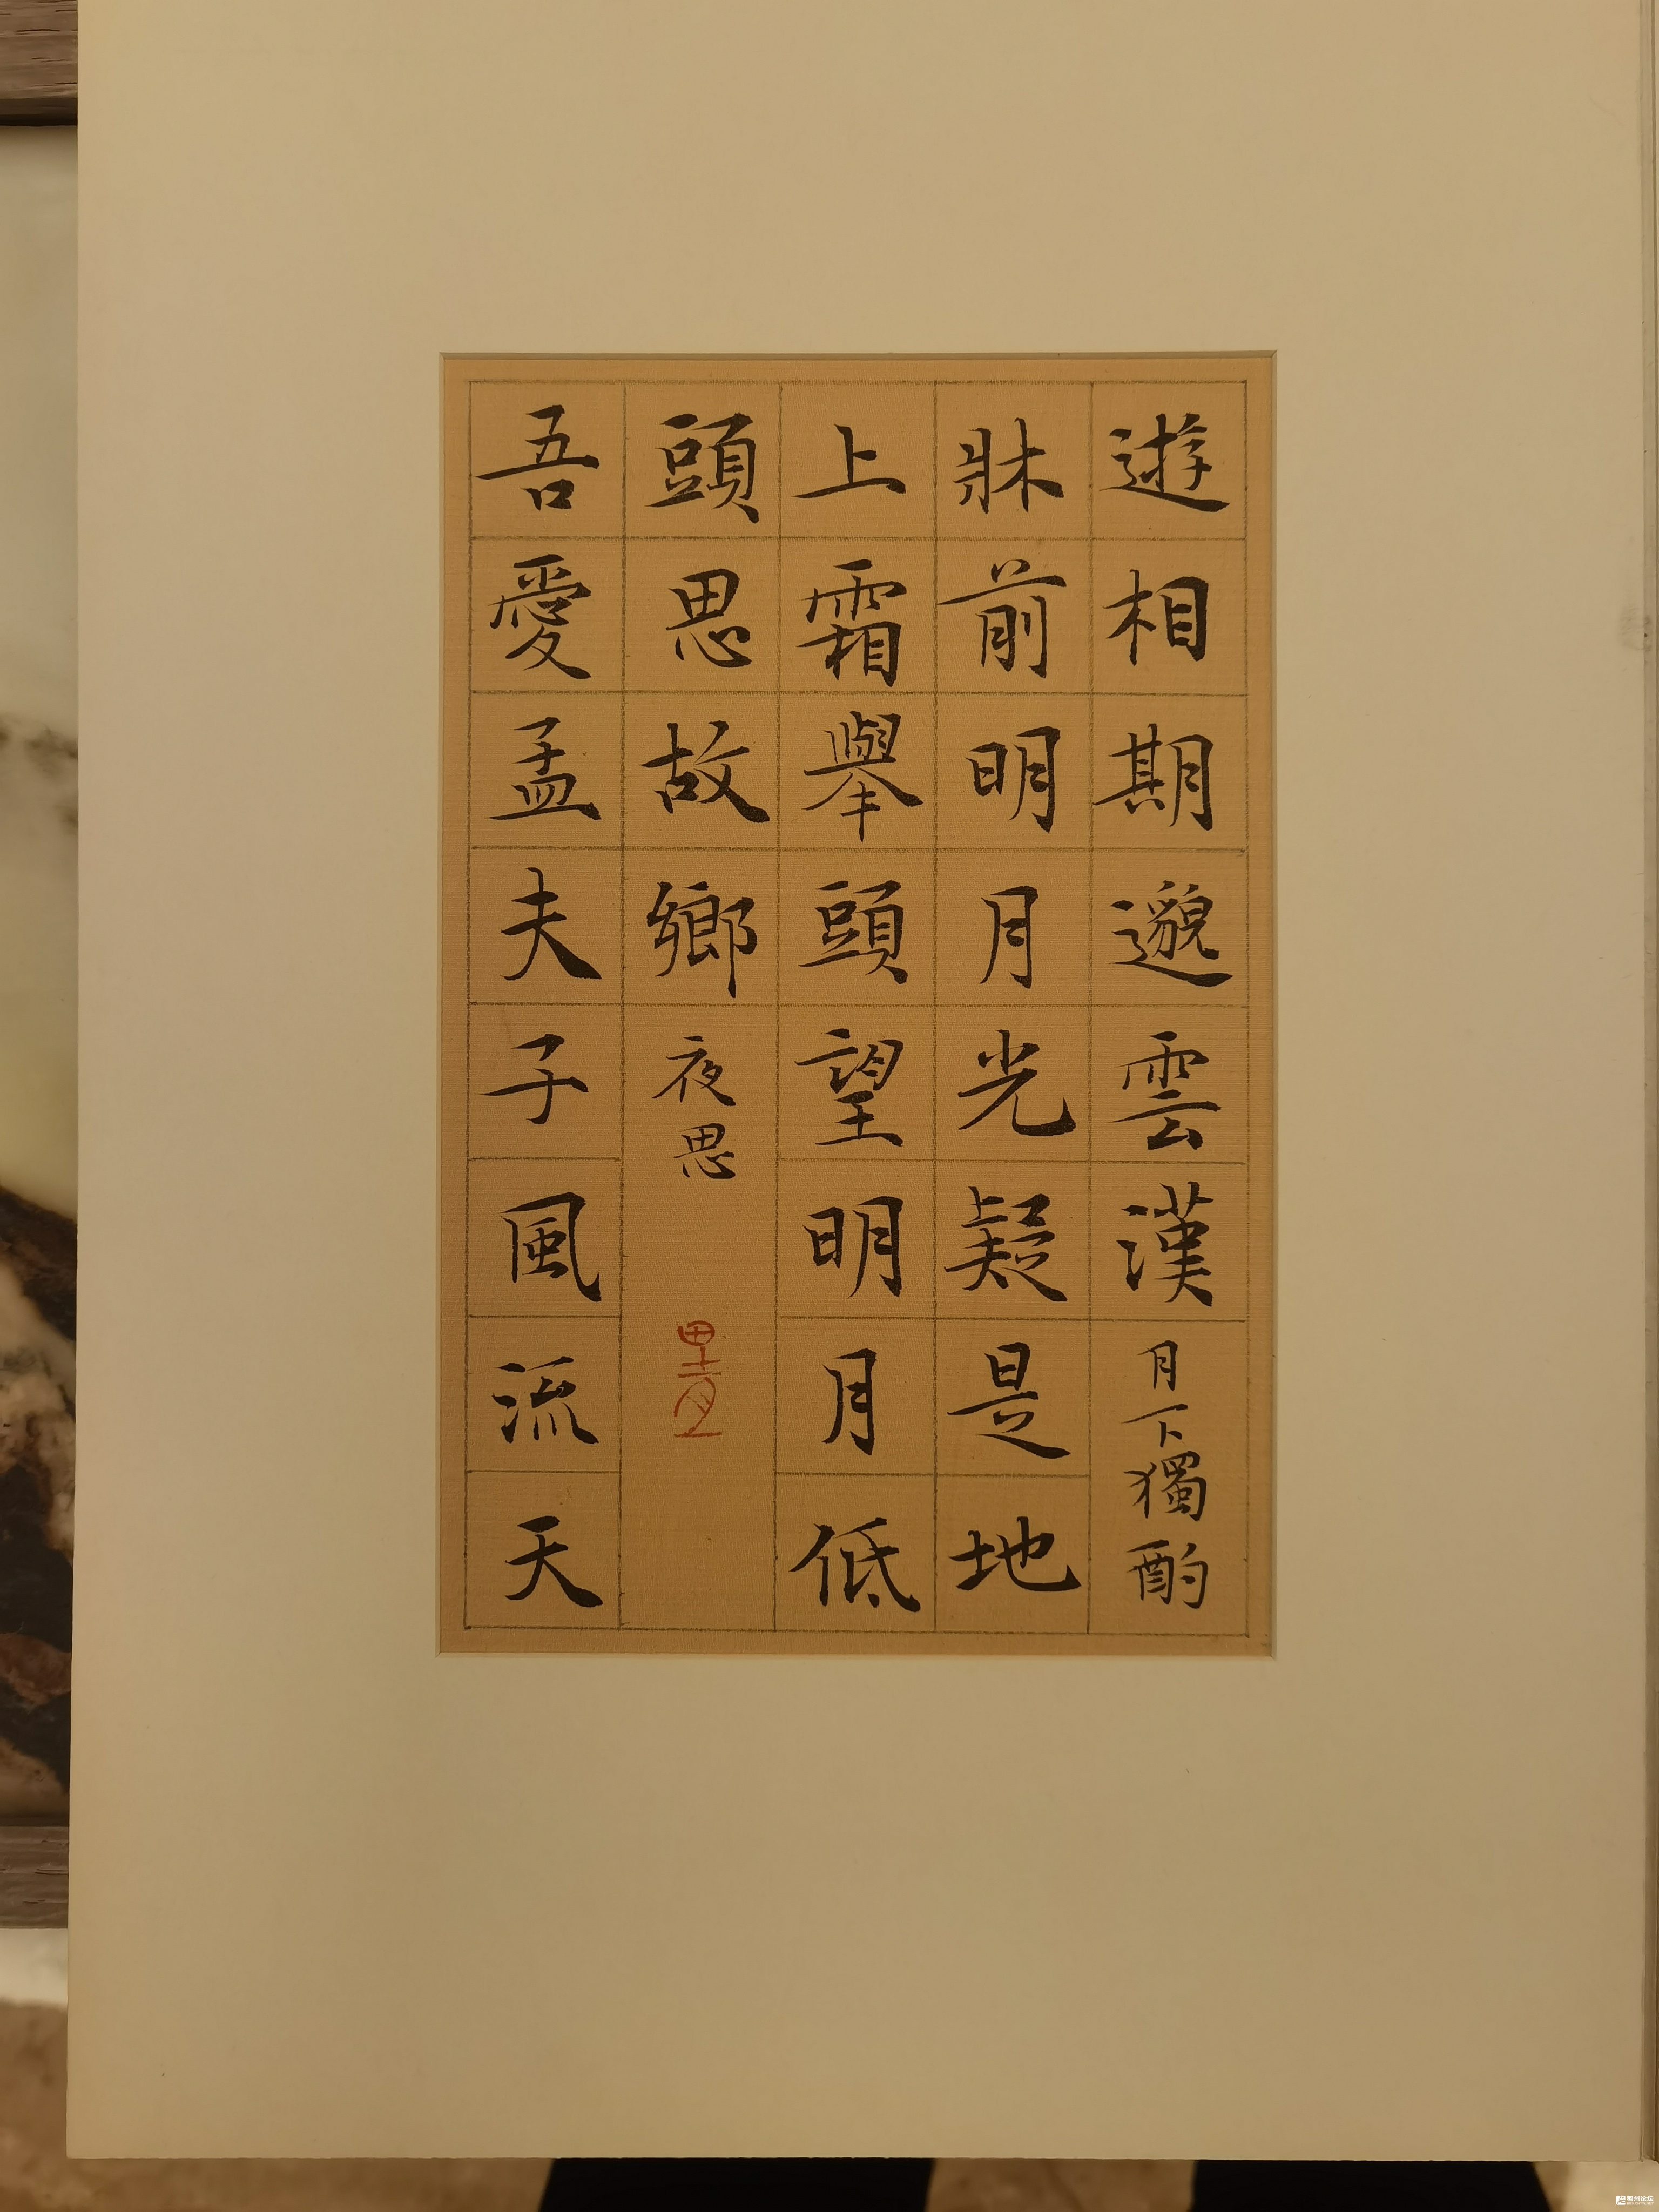 遊相期邈雲漢月下獨酌
牀前明月光疑是地
上霜舉頭望明月低
頭思故鄉夜思
吾愛孟夫子風流天